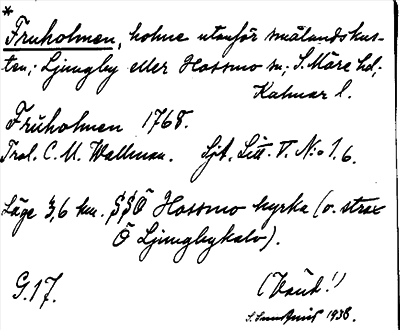 *
Fruholmen, holme utanför smålandskus-
ten; Ljungby eller Hossmo sn; S. Möre hd;
Kalmar l.
Fruholmen 1768.
Trol. C. M. Wallman. Sjt. Litt. V. N:o 1. 6.
Läge 3,6 km. SSÖ Hossmo kyrka (o. strax
Ö Ljungbykalv).
G.17. (Vänd!)
1938.